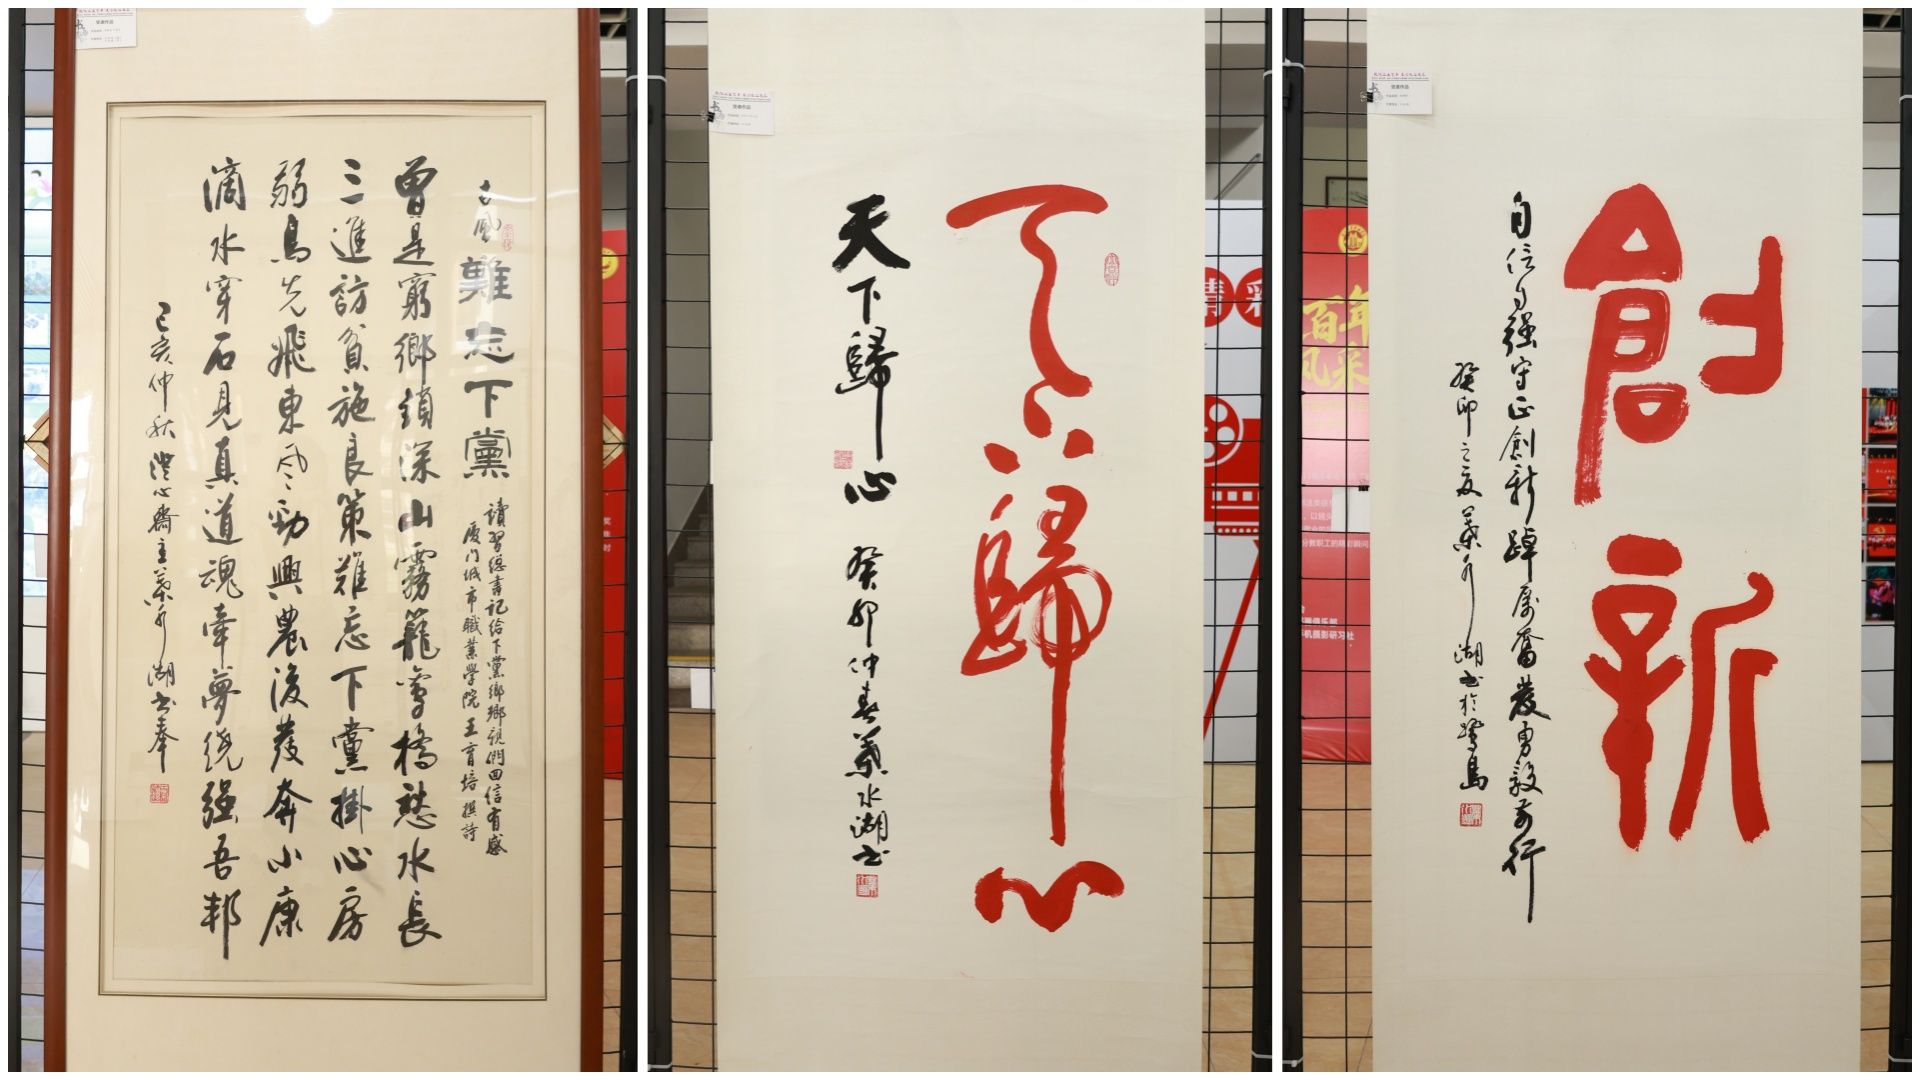 古風
難忘下黨
讀習總書記給下黨鄉鄉親們回信有感
厦门城市職業学院王育培撰詩
曾是窮鄉鎖深山霧籠雩橋愁水長
三進訪貧施良策難忘下黨掛心房
弱鳥先飛東风勁興農後發奔小康
滴水穿石見真道魂牽夢绕强吾邦
己亥仲秋澄心齋主葉水湖书奉
天下歸心
天下歸心
癸卯仲春葉水湖书
創新
自信自强守正創新踔厲奮發勇毅前行
癸卯之夏葉水湖书於鷺島
受邀作品
受邀作品
受邀作品
精彩
百年
风采